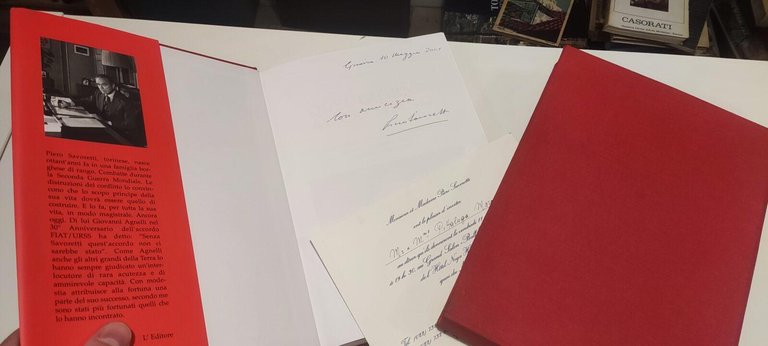 Piero Savoretti, torinese, nasce
ottant'anni fa in una famiglia bor-
ghese di rango. Combatte durante
la Seconda Guerra Mondiale. Le
distruzioni del conflitto lo convin-
cono che lo scopo principe della
sua vita dovrà essere quello di
costruire. E lo fa, per tutta la sua
vita, in modo magistrale. Ancora
oggi. Di lui Giovanni Agnelli nel
30° Anniversario dell'accordo
FIAT/URSS ha detto: "Senza
Savoretti quest'accordo non ci
sarebbe stato". Come Agnelli
anche gli altri grandi della Terra lo
hanno sempre giudicato un'inter-
locutore di rara acutezza e di
ammirevole capacità. Con mode-
stia attribuisce alla fortuna una
parte del suo successo, secondo me
sono stati più fortunati quelli che
lo hanno incontrato.
L' Editore
10 Maggio
con amicizia
Monsieur et Madame Piero Savoretti
ont le plaisir d'inviter
M. et Mme
au dîner qu'ils donneront le vendredi
à 19 h. 30, au Grand Salon
de l'Hôtel
Tel.
CASORATI